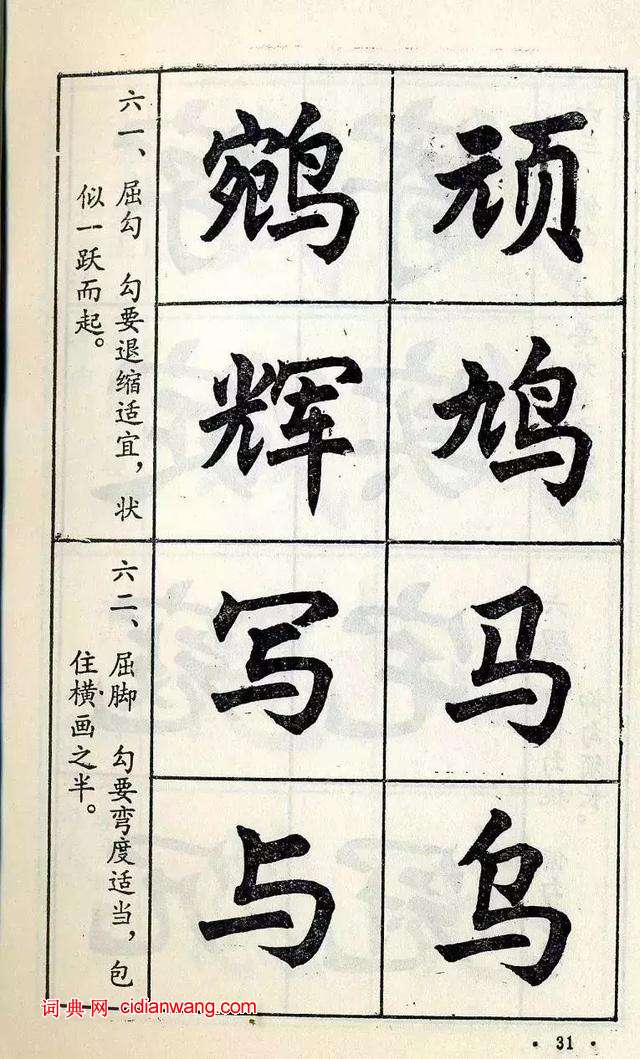 顽鸠马乌
鹓辉写与
六一、屈勾 勾要退缩适宜，状
似一跃而起。
六二、屈脚 勾要弯度适当，包
住横画之半。
词典网 cidianwang.com
· 31 ·